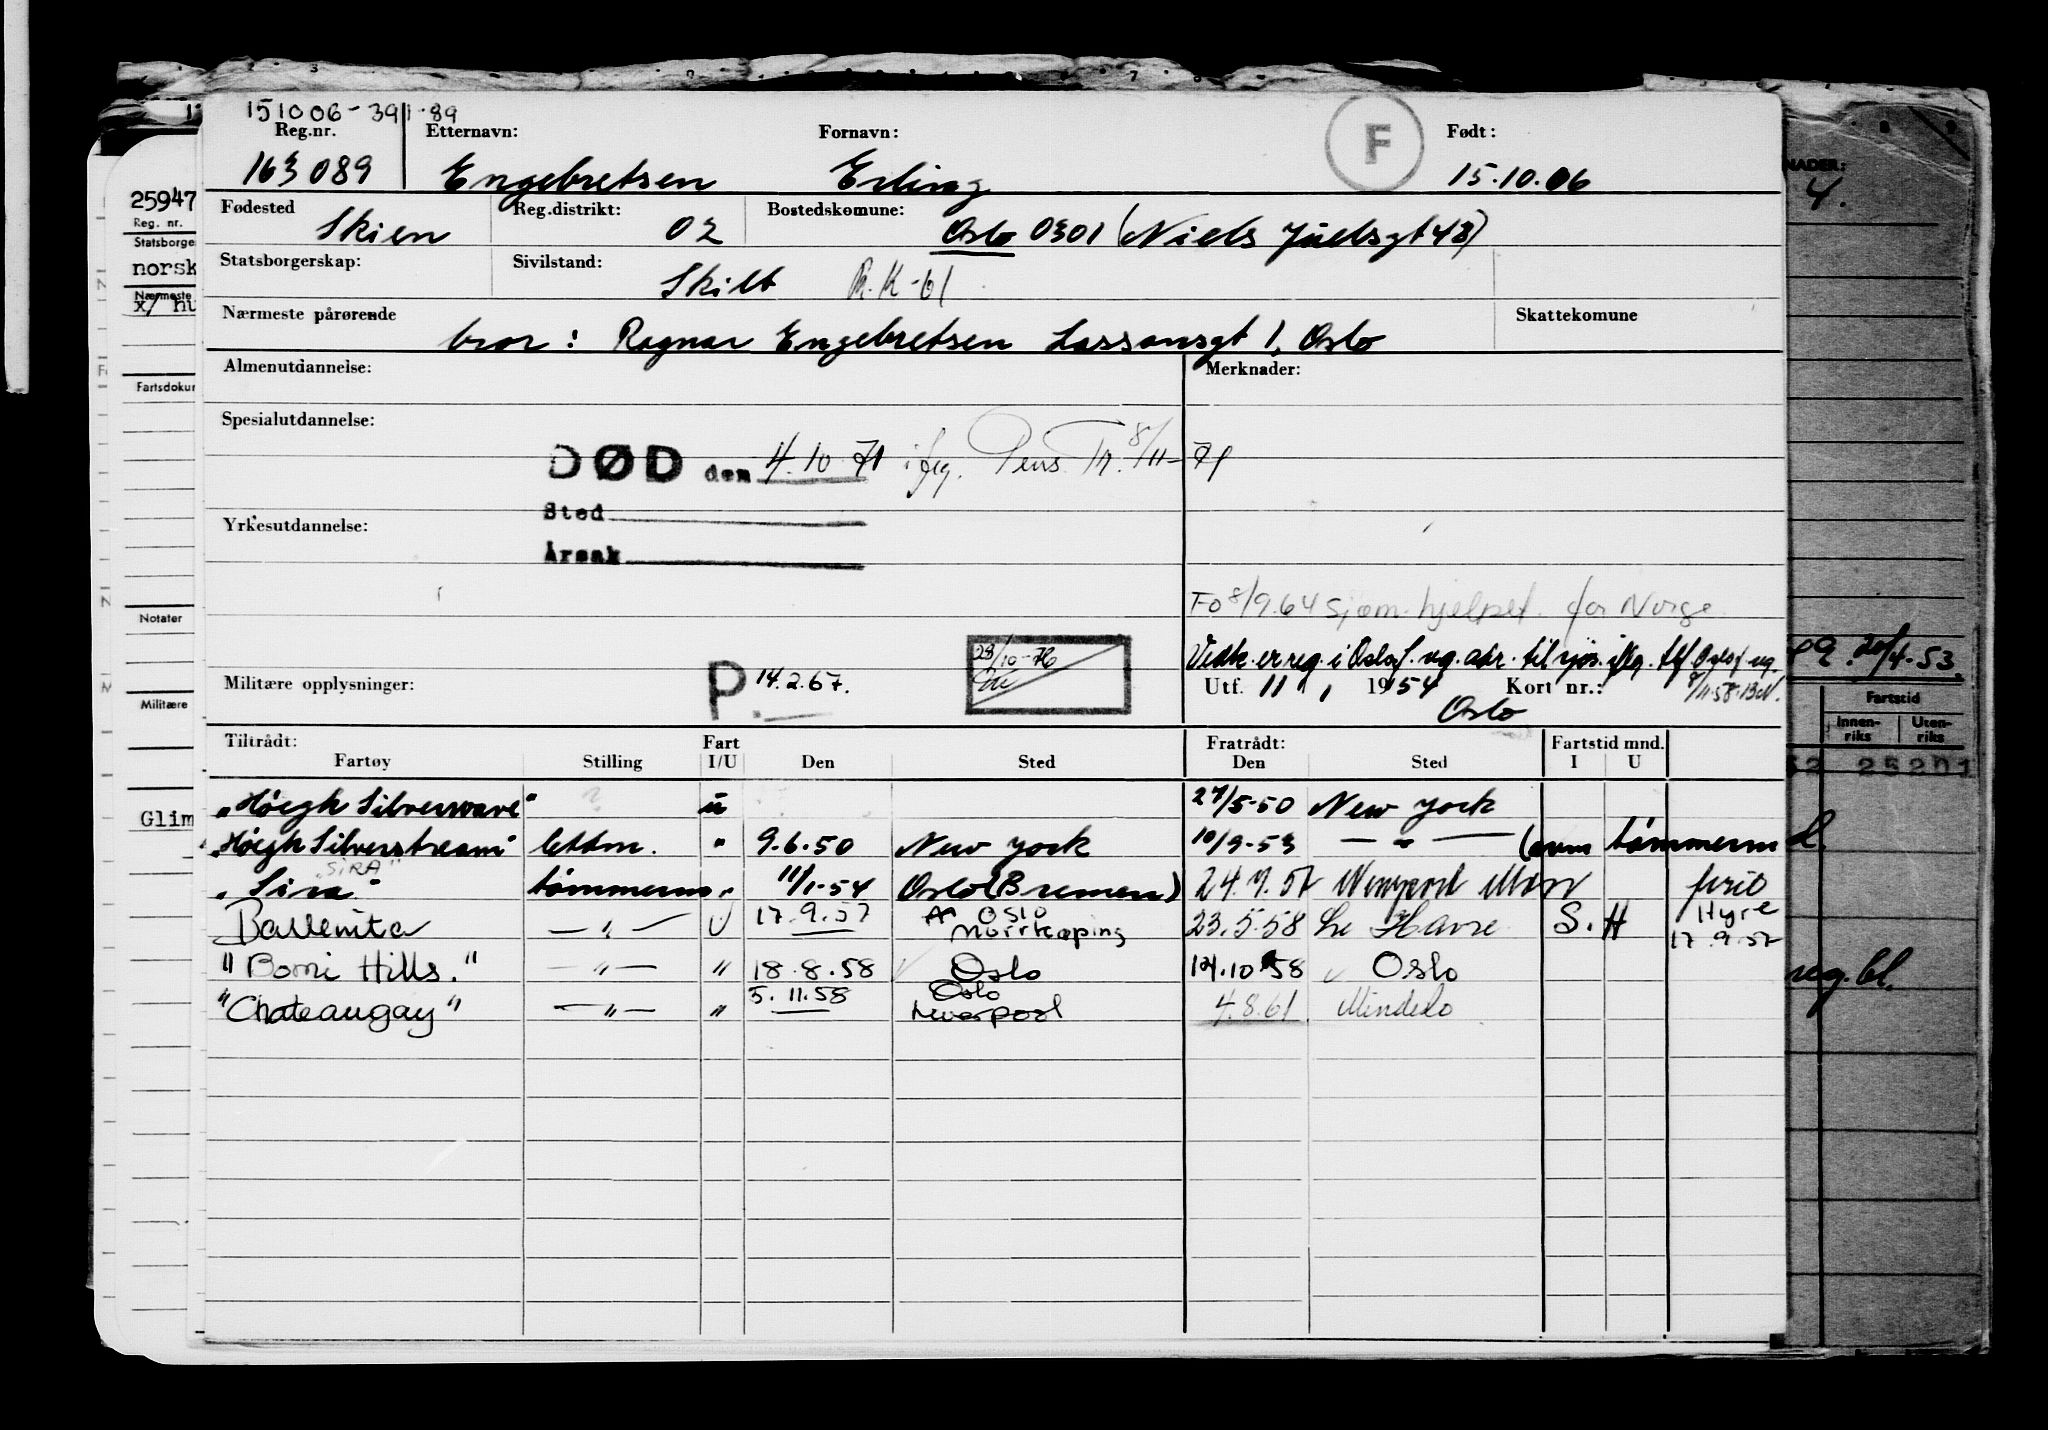 151006-391-89
Reg.nr. Etternavn: Fornavn: F Født:
163089 Engebretsen Erling 15.10.06
Fødested Reg.distrikt: Bostedskomune:
Skien 02 Oslo 0301 (Niels Juelsgt 48)
Statsborgerskap: Sivilstand:
Skilt R.K-61
Nærmeste pårørende Skattekomune
bror: Ragnar Engebretsen Lassonsgt 1, Oslo
Almenutdannelse: Merknader:
Spesialutdannelse:
DØD den 4.10.71 iflg. Pens.Tr. 8/11-71
Sted
Yrkesutdannelse:
Årsak
Fo 8/9.64 sjøm. hjelpet for Norge
28/10-76
Vedk. er reg. i Oslo f. og adr. til sjøs iflg. tlf Oslo
Militære opplysninger: P 14.2.67. Utf. 11/1 1954 Kort nr.: 8/11.58.
Oslo
Tiltrådt: Fart Fratrådt: Fartstid mnd.
Fartøy Stilling I/U Den Sted Den Sted I U
"Höegh Silverwave" u 27/5-50 New York
"Höegh Silverstream" lettm. " 9.6.50 New York 10/9-53 — " — (som tømmerm
"SIRA"
"Sira" tømmerm " 11/1-54 Oslo (Bremen) 24.7.57 Newport ferie
Ballenita — " — U 17.9.57 Oslo Norrkøping 23.5.58 Le Havre S. H Hyre 17.9.57
"Bomi Hills." — " — " 18.8.58 Oslo 14.10.58 Oslo
"Chateaugay" — " — " 5.11.58 Oslo Liverpool 4.8.61 Mindelo
25947
Reg. nr.
Statsborge
norsk
Nærmeste
x/ hu
Fartsdokur
Notater
Militære
Glim
NADER:
4.
20/4-53.
Fartstid
Innen-riks Uten-riks
52 25201
reg.bl.